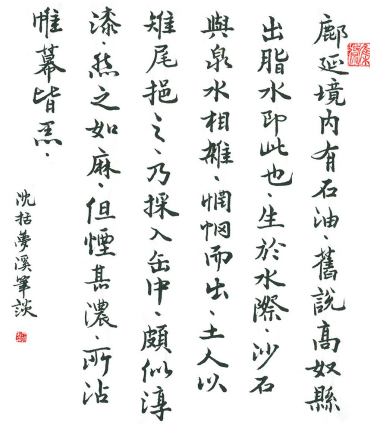 鄜延境內有石油、舊說高奴縣
出脂水即此也、生於水際、沙石
與泉水相雜、惘惘而出、土人以
雉尾挹之、乃採入缶中、頗似淳
漆、然之如麻、但煙甚濃、所沾
帷幕皆黑、
沈括夢溪筆談